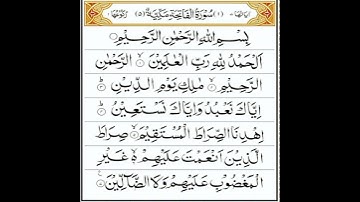 سُوْرَةُ الْفَاتِحَةِ مَكِّيَّةٌ (٥)
بِسْمِ اللهِ الرَّحْمٰنِ الرَّحِيْمِ
اَلْحَمْدُ لِلّٰهِ رَبِّ الْعٰلَمِيْنَ ۙ الرَّحْمٰنِ
الرَّحِيْمِ ۙ مٰلِكِ يَوْمِ الدِّيْنِ ؕ
اِيَّاكَ نَعْبُدُ وَاِيَّاكَ نَسْتَعِيْنُ ؕ
اِهْدِنَا الصِّرَاطَ الْمُسْتَقِيْمَ ۙ صِرَاطَ
الَّذِيْنَ اَنْعَمْتَ عَلَيْهِمْ ۙ غَيْرِ
الْمَغْضُوْبِ عَلَيْهِمْ وَلَا الضَّآلِّيْنَ